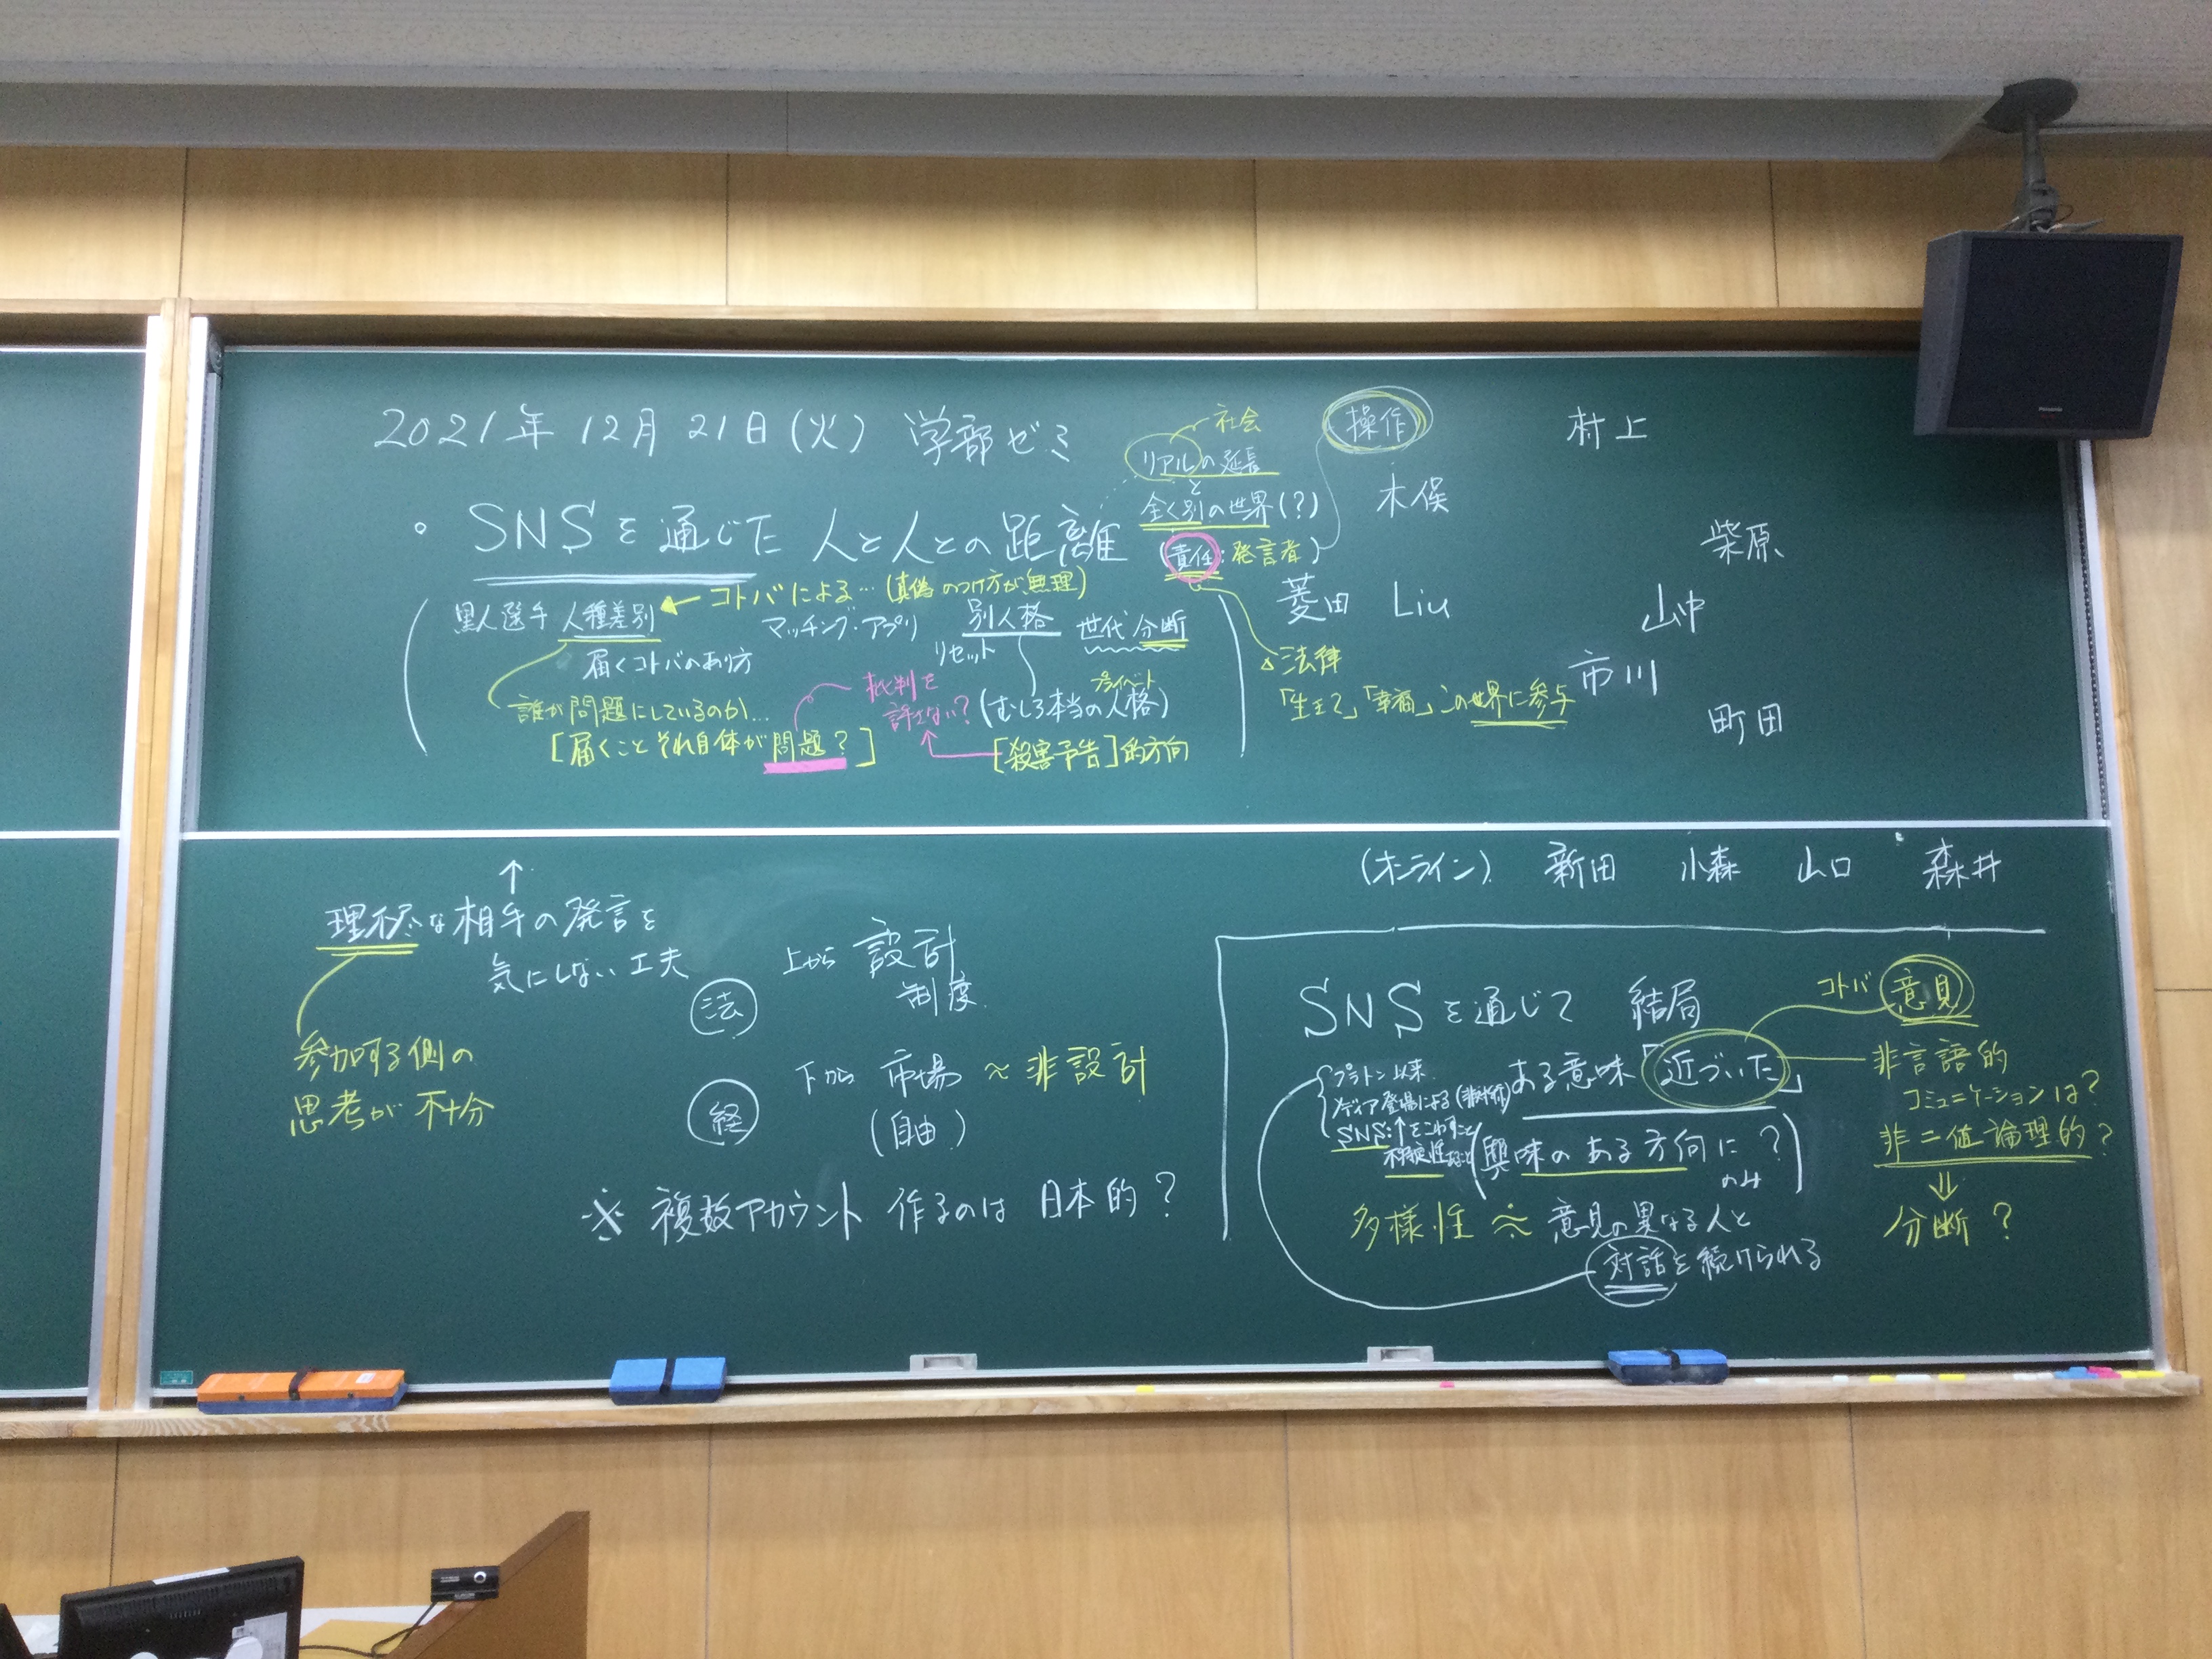 2021年12月21日(火) 学部ゼミ
社会
リアルの延長
と
全く別の世界(?)
(責任:発言者)
操作
村上
木俣
柴原
菱田 Liu
山中
市川
町田
。SNSを通じた 人と人との距離
コトバによる…(真偽のつけ方が無理)
黒人選手 人種差別
マッチング・アプリ
別人格
世代分断
リセット
届くコトバのあり方
誰が問題にしているのか…
[届くことそれ自体が問題?]
批判を
許せない?
プライベート
(むしろ本当の人格)
[殺害予告]的方向
法律
「生きて」「幸福」この世界に参与
↑
理不尽な相手の発言を
気にしない工夫
参加する側の
思考が不十分
法 上から 設計
制度
経 下から 市場 ≈ 非設計
(自由)
※ 複数アカウント 作るのは 日本的?
(オンライン) 新田 小森 山口 森井
SNSを通じて 結局
ある意味「近づいた」
コトバ 意見
プラトン以来
メディア登場による
SNS:↑をこわすこと
(興味のある方向に?
のみ)
非言語的
コミュニケーションは?
非二値論理的?
⇓
分断?
多様性 ≈ 意見の異なる人と
対話を続けられる
Panasonic